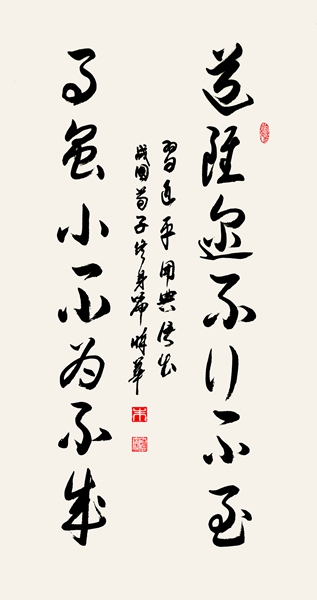 道雖邇不行不至
事虽小不为不成
習近平用典語出
戰國荀子修身篇
朱